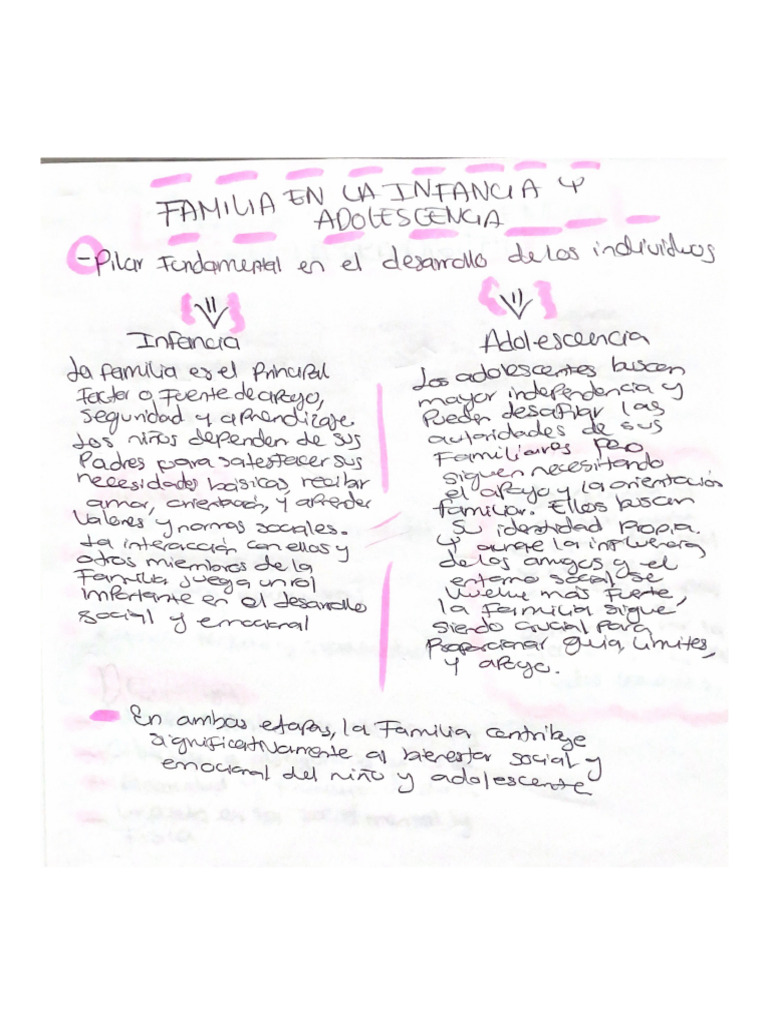 FAMILIA EN LA INFANCIA Y
ADOLESCENCIA
- Pilar Fundamental en el desarrollo de los individuos
Infancia
La familia es el Principal
Factor o Fuente de apoyo,
Seguridad y aprendizaje.
Los niños dependen de sus
Padres para satesfacer sus
necesidades básicas, recibir
amor, orientación, y aprender
Valores y normas sociales.
La interacción con ellos y
otros miembros de la
Familia juega un rol
Importante en el desarrollo
social y emocional
Adolescencia
Los adolescentes buscan
mayor independencia y
Pueden desafiar las
autoridades de sus
Familiares pero
siguen necesitando
el apoyo y la orientación
familiar. Ellos buscan
su identidad propia.
Y aunque la influencia
de los amigos y el
entorno social se
vuelve más fuerte,
la Familia sigue
siendo crucial para
Proporcionar Guia, Limites,
y apoyo.
En ambas etapas, la Familia contribuye
significativamente al bienestar social y
emocional del niño y adolescente